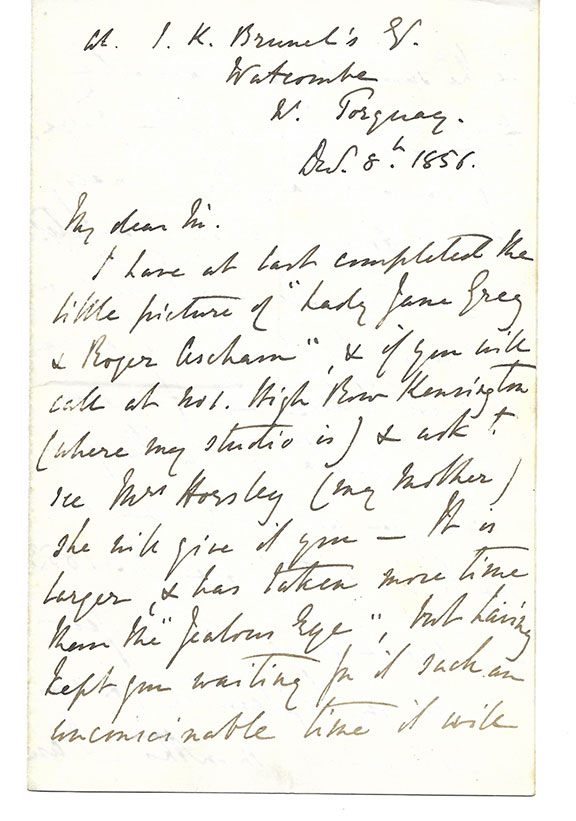 at. I. K. Brunel's Esq.
Watcombe
N. Torquay.
Decr. 8th. 1856.
My dear Sir.
I have at last completed the
little picture of "Lady Jane Grey
& Roger Ascham", & if you will
call at No 1. High Row Kensington
(where my studio is) & ask to
see Mrs Horsley (my mother)
she will give it you — It is
larger, & has taken more time
than the "Jealous Eye", but having
kept you waiting for it such an
unconscionable time it will